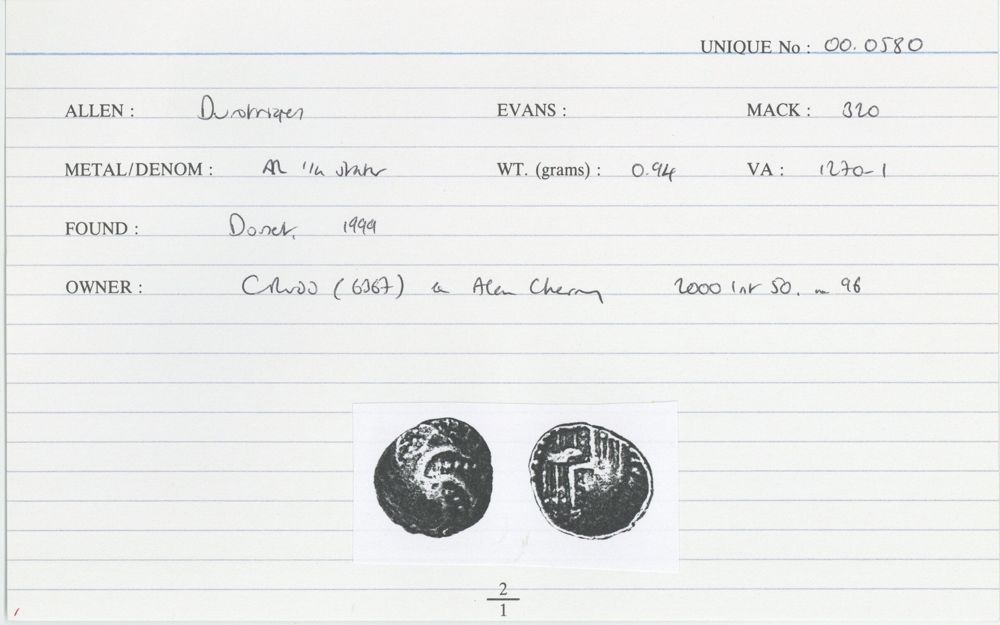 UNIQUE No : 00.0580
ALLEN : Durotriges EVANS : MACK : 320
METAL/DENOM : AR 1/4 stater WT. (grams) : 0.94 VA : 1270-1
FOUND : Dorset, 1999
OWNER : (6367) Alan Cherry 2000 50. 96
2
1